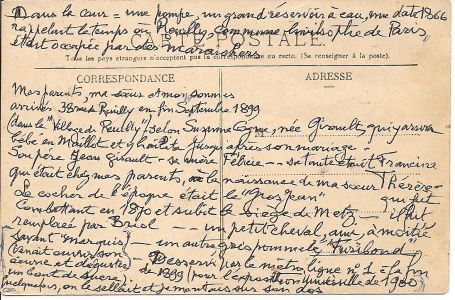 Dans la cour = une pompe, un grand réservoir à eau, une date 1866
rappelant le temps où Neuilly, Commune limitrophe de Paris,
CARTE POSTALE
était occupée par des Maraichers
Tous les pays étrangers n'acceptent pas la correspondance au recto. (Se renseigner à la poste).
CORRESPONDANCE
ADRESSE
Mes parents, ma sœur et moi sommes
arrivés 38 rue de Reuilly en fin Septembre 1899
(dans le "Village de Reuilly") selon Suzanne née Girault, qui y arriva
bébé en Juillet et y habita jusqu'après son mariage -
Son père Jean Girault - sa mère Félicie - sa tante était Francine
qui était chez mes parents, à la naissance de ma sœur Thérèse -
Le cocher de l'époque était le "Gros Jean" qui fut
Combattant en 1870 et subit le siège de Metz - il fut
remplacé par Briol - un petit cheval, aux à moitié
savant "Marquis" - un autre gris pommelé "Furibond"
(venait ouvrir son
œuvre et déguster
un quart de sucre,
Desservi par le métro, ligne n° 1 à la fin
de 1899 (pour l'exposition universelle de 1900)
quelquefois, on le sellait et je montais sur son dos